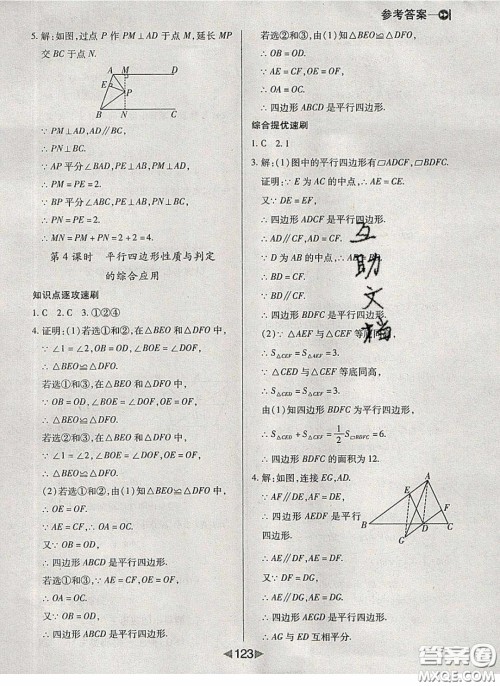 参考答案
5. 解:如图,过点 P 作 PM⊥AD 于点 M,延长 MP
交 BC 于点 N.
A M D
E
P
B N C
∵ PM⊥AD,AD∥BC,
∴ PN⊥BC.
∵ AP 平分∠BAD,PM⊥AD,PE⊥AB,
∴ PM=PE=2.
∵ BP 平分∠ABC,PN⊥BC,PE⊥AB,
∴ PN=PE=2.
∴ MN=PM+PN=2+2=4.
第 4 课时 平行四边形性质与判定
的综合应用
知识点逐攻速刷
1. C 2. C 3. ①②④
4. 证明:(1)若选①和②,在△BEO 和△DFO 中,
∵ ∠1=∠2,OB=OD,∠BOE=∠DOF,
∴ △BEO≌△DFO.
若选①和③,在△BEO 和△DFO 中,
∵ OB=OD,∠BOE=∠DOF,OE=OF,
∴ △BEO≌△DFO.
若选②和③,在△BEO 和△DFO 中,
∵ ∠1=∠2,∠BOE=∠DOF,OE=OF,
∴ △BEO≌△DFO.
(2)若选①和②,由(1)知△BEO≌△DFO,
∴ OE=OF.
∵ AE=CF,∴ OA=OC.
又∵ OB=OD,
∴ 四边形 ABCD 是平行四边形.
若选①和③,∵ AE=CF,OE=OF,
∴ OA=OC.
又∵ OB=OD,
∴ 四边形 ABCD 是平行四边形.
若选②和③,由(1)知△BEO≌△DFO,
∴ OB=OD.
又∵ AE=CF,OE=OF,
∴ OA=OC.
∴ 四边形 ABCD 是平行四边形.
综合提优速刷
1. C 2. 1
3. 解:(1)图中的平行四边形有▱ADCF,▱BDFC.
证明:∵ E 为 AC 的中点,∴ AE=CE.
又∵ DE=EF,
∴ 四边形 ADCF 是平行四边形.
∴ AD∥CF,AD=CF.
∵ D 为 AB 的中点,∴ AD=BD.
∴ BD=CF.
又∵ BD∥CF,
∴ 四边形 BDFC 是平行四边形.
(2)∵ △AEF 与△CEF 等底同高,
∴ S△CEF=S△AEF=3.
∵ △CED 与△CEF 等底同高,
∴ S△CED=S△CEF=3.
由(1)知四边形 BDFC 是平行四边形,
∴ S△CED+S△CEF=1/2S▱BDFC=6.
∴ 四边形 BDFC 的面积为 12.
4. 解:如图,连接 EG,AD.
∵ AE∥DF,AF∥DE,
∴ 四边形 AEDF 是平行四边形.
A
E F
B D C
G
∴ AE∥DF,AE=DF.
又∵ DF=DG,
∴ AE∥DG,AE=DG.
∴ 四边形 AEGD 是平行四边形.
∴ AG 与 ED 互相平分.
互助文档
123
答案圈